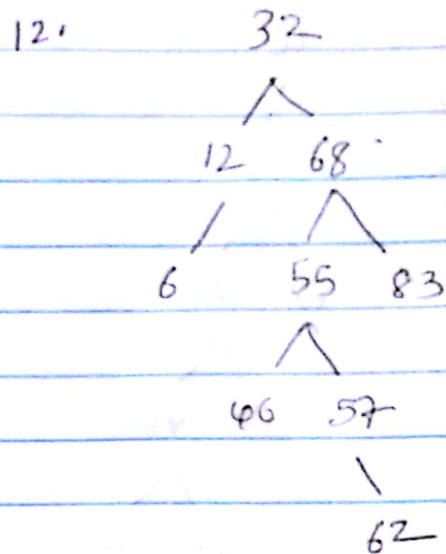 12.
32
12 68
6 55 83
46 57
62